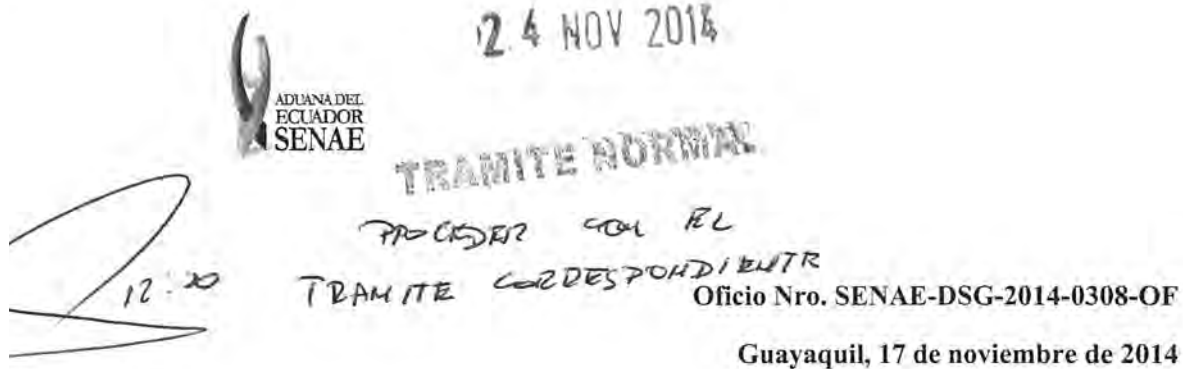 24 NOV 2014
ADUANA DEL
ECUADOR
SENAE
TRAMITE NORMAL
PROCEDER CON EL
TRAMITE CORRESPONDIENTE
12:20
Oficio Nro. SENAE-DSG-2014-0308-OF
Guayaquil, 17 de noviembre de 2014